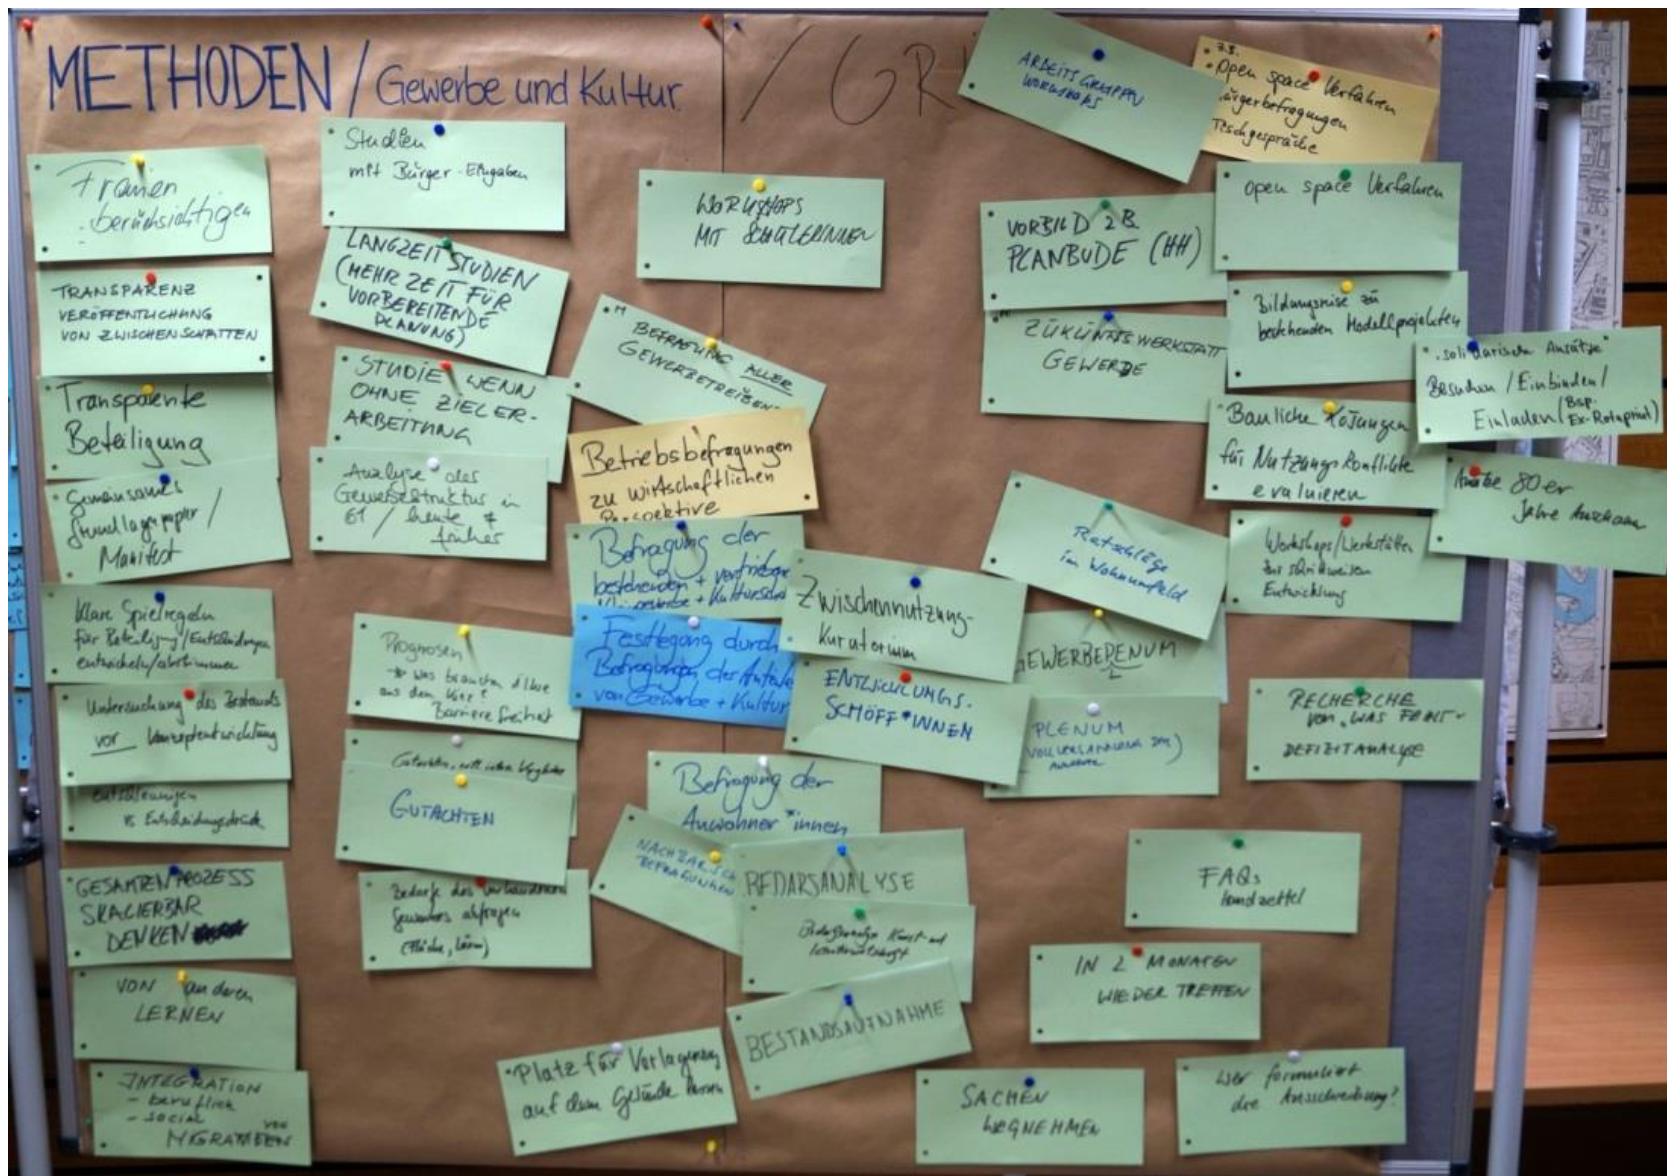 METHODEN / Gewerbe und Kultur
/ GR
Frauen
berücksichtigen
TRANSPARENZ
VERÖFFENTLICHUNG
VON ZWISCHENSCHRITTEN
Transparente
Beteiligung
Gemeinsames
Grundlagenpapier /
Manifest
klare Spielregeln
für Beteiligung/Entscheidungen
entwickeln/abstimmen
Untersuchung des Bestands
vor Konzeptentwicklung
entschleunigen
vs Entscheidungsdruck
GESAMTEN PROZESS
SKALIERBAR
DENKEN
VON anderen
LERNEN
INTEGRATION
- beruflich
- social
VON
MIGRANTEN
Studien
mit Bürger-Eingaben
LANGZEITSTUDIEN
(MEHR ZEIT FÜR
VORBEREITENDE
PLANUNG)
STUDIE WENN
OHNE ZIELER-
ARBEITUNG
Analyse des
Gewerbestruktur in
61 / heute &
früher
Prognosen
aus dem Kiez?
Barrierefreiheit
Gutachten,
GUTACHTEN
Bedarfe des vorhandenen
Gewerbes abfragen
(Fläche, Lärm)
WORKSHOPS
MIT SCHÜLERINNEN
BEFRAGUNG ALLER
GEWERBETREIBEN
Betriebsbefragungen
zu wirtschaftlichen
Perspektive
Befragung der
bestehenden + vertrieben
Festlegung durch
Befragungen der Anteile
von Gewerbe + Kultur
Zwischennutzung-
Kuratorium
ENTWICKLUNGS-
SCHÖFF*INNEN
Befragung der
Anwohner*innen
NACHBARSCH
BEFRAGUNGEN
BEDARSANALYSE
Bedarfsanalyse Kunst- und
BESTANDSAUFNAHME
Platz für Verlagerung
auf dem Gelände lassen
ARBEITSGRUPPEN
WORKSHOPS
z.B.
Open space Verfahren
Bürgerbefragungen
Tischgespräche
VORBILD z.B.
PLANBUDE (HH)
open space Verfahren
ZUKUNFTSWERKSTATT
GEWERBE
Bildungsreise zu
bestehenden Modellprojekten
"solidarische Ansätze"
Besuchen / Einbinden /
Einladen / (Bsp. Ex-Rotaprint)
Bauliche Lösungen
für Nutzungskonflikte
evaluieren
80er
Jahre
Ratschläge
im Wohnumfeld
Workshops/Werkstätten
zur schrittweisen
Entwicklung
GEWERBEPLENUM
PLENUM
RECHERCHE
VON "WAS FEHLT"-
DEFIZITANALYSE
FAQs
Handzettel
IN 2 MONATEN
WIEDER TREFFEN
SACHEN
WEGNEHMEN
Wer formuliert
die Ausschreibung?